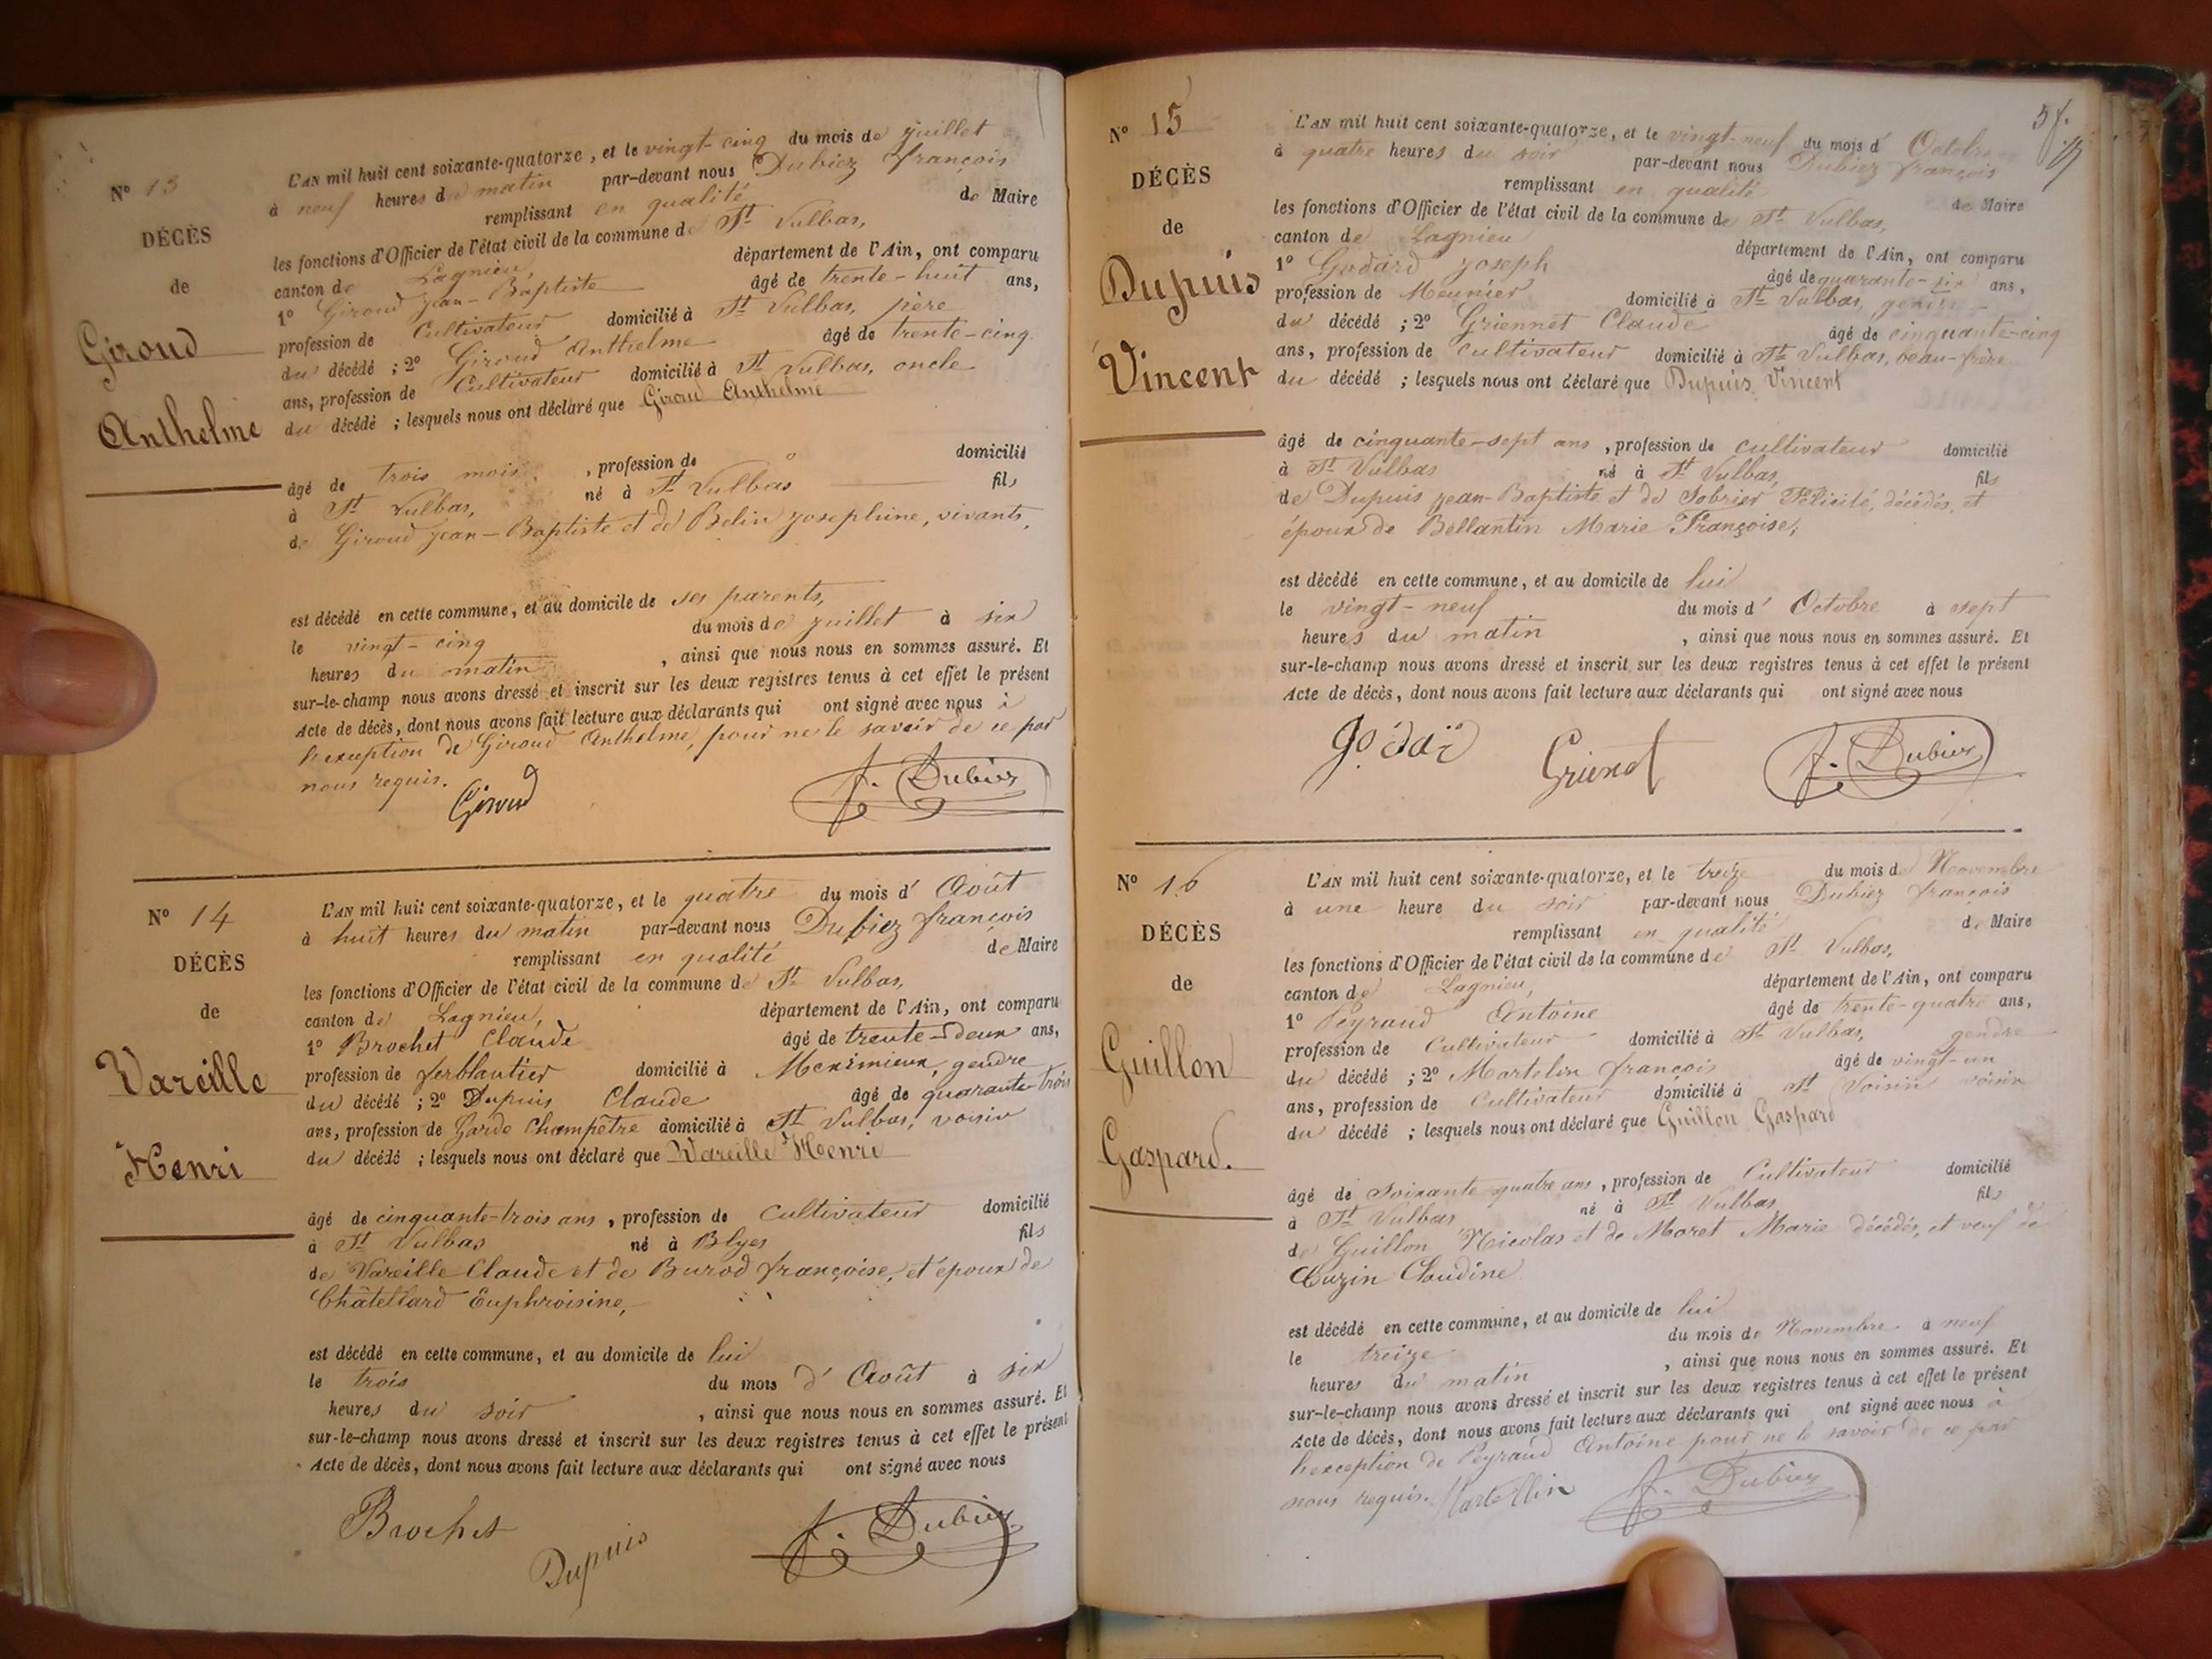 N° 13
DÉCÈS
de
Giroud
Anthelme
L'AN mil huit cent soixante-quatorze, et le vingt-cinq du mois de Juillet
à neuf heures du matin par-devant nous Dubiez françois
remplissant en qualité de Maire
les fonctions d'Officier de l'état civil de la commune de St Vulbas,
canton de Lagnieu, département de l'Ain, ont comparu
1° Giroud Jean-Baptiste âgé de trente-huit ans,
profession de Cultivateur domicilié à St Vulbas, père
du décédé ; 2° Giroud Anthelme âgé de trente-cinq
ans, profession de Cultivateur domicilié à St Vulbas, oncle
du décédé ; lesquels nous ont déclaré que Giroud Anthelme
âgé de trois mois, profession de domicilié
à St Vulbas, né à St Vulbas fils
de Giroud Jean-Baptiste et de Belin Josephine, vivants,
est décédé en cette commune, et au domicile de ses parents,
le vingt-cinq du mois de Juillet à six
heures du matin, ainsi que nous nous en sommes assuré. Et
sur-le-champ nous avons dressé et inscrit sur les deux registres tenus à cet effet le présent
Acte de décès, dont nous avons fait lecture aux déclarants qui ont signé avec nous à
l'exception de Giroud Anthelme, pour ne le savoir de ce par
nous requis.
Giroud F. Dubiez
N° 14
DÉCÈS
de
Vareille
Henri
L'AN mil huit cent soixante-quatorze, et le quatre du mois d' Août
à huit heures du matin par-devant nous Dubiez françois
remplissant en qualité de Maire
les fonctions d'Officier de l'état civil de la commune de St Vulbas,
canton de Lagnieu, département de l'Ain, ont comparu
1° Brochet Claude âgé de trente-deux ans,
profession de ferblantier domicilié à Meximieux, gendre
du décédé ; 2° Dupuis Claude âgé de quarante-trois
ans, profession de Garde Champêtre domicilié à St Vulbas, voisin
du décédé ; lesquels nous ont déclaré que Vareille Henri
âgé de cinquante-trois ans, profession de Cultivateur domicilié
à St Vulbas né à Blyes fils
de Vareille Claude et de Burod françoise, et époux de
Châtellard Euphroisine,
est décédé en cette commune, et au domicile de lui
le trois du mois d' Août à six
heures du soir, ainsi que nous nous en sommes assuré. Et
sur-le-champ nous avons dressé et inscrit sur les deux registres tenus à cet effet le présent
Acte de décès, dont nous avons fait lecture aux déclarants qui ont signé avec nous
Brochet Dupuis F. Dubiez
N° 15
DÉCÈS
de
Dupuis
Vincent
L'AN mil huit cent soixante-quatorze, et le vingt-neuf du mois d' Octobre
à quatre heures du soir par-devant nous Dubiez françois
remplissant en qualité de Maire
les fonctions d'Officier de l'état civil de la commune de St Vulbas,
canton de Lagnieu département de l'Ain, ont comparu
1° Godard Joseph âgé de quarante-six ans,
profession de Meunier domicilié à St Vulbas, gendre
du décédé ; 2° Griennet Claude âgé de cinquante-cinq
ans, profession de Cultivateur domicilié à St Vulbas, beau-frère
du décédé ; lesquels nous ont déclaré que Dupuis Vincent
âgé de cinquante-sept ans, profession de Cultivateur domicilié
à St Vulbas né à St Vulbas, fils
de Dupuis Jean-Baptiste et de Sobrier Félicité, décédés, et
époux de Bellantin Marie Françoise,
est décédé en cette commune, et au domicile de lui
le vingt-neuf du mois d' Octobre à sept
heures du matin, ainsi que nous nous en sommes assuré. Et
sur-le-champ nous avons dressé et inscrit sur les deux registres tenus à cet effet le présent
Acte de décès, dont nous avons fait lecture aux déclarants qui ont signé avec nous
F. Dubiez
N° 16
DÉCÈS
de
Guillon
Gaspard.
L'AN mil huit cent soixante-quatorze, et le treize du mois de Novembre
à une heure du soir par-devant nous Dubiez françois
remplissant en qualité de Maire
les fonctions d'Officier de l'état civil de la commune de St Vulbas,
canton de Lagnieu, département de l'Ain, ont comparu
1° Peyraud Antoine âgé de trente-quatre ans,
profession de Cultivateur domicilié à St Vulbas, gendre
du décédé ; 2° Martelin françois âgé de vingt-un
ans, profession de Cultivateur domicilié à St Voisin voisin
du décédé ; lesquels nous ont déclaré que Guillon Gaspard
âgé de soixante quatre ans, profession de Cultivateur domicilié
à St Vulbas né à St Vulbas fils
de Guillon Nicolas et de Moret Marie décédés, et veuf de
Cuzin Claudine
est décédé en cette commune, et au domicile de lui
le treize du mois de Novembre à neuf
heures du matin, ainsi que nous nous en sommes assuré. Et
sur-le-champ nous avons dressé et inscrit sur les deux registres tenus à cet effet le présent
Acte de décès, dont nous avons fait lecture aux déclarants qui ont signé avec nous à
l'exception de Peyraud Antoine pour ne le savoir de ce par
nous requis. Martellin F. Dubiez